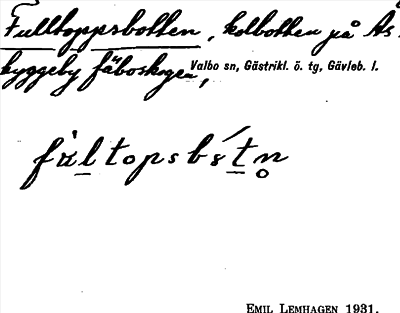 Fulltoppsbotten, kolbotten på Ås-
byggeby fäboskogen,
Valbo sn, Gästrikl. ö. tg, Gävleb. l.
fùltopsbstn̥
EMIL LEMHAGEN 1931.